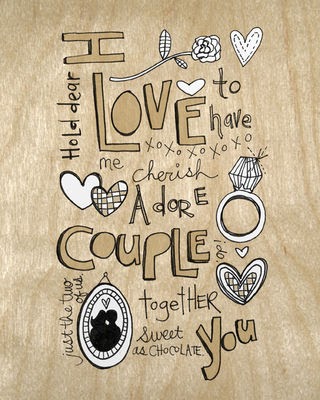 I
Hold dear
LOVE to
have
xoxoxoxoxo
me cherish
AdorE
COUPLE
i do!
just the two
of us.
togetHER
sweet
as CHOCOLATE.
you